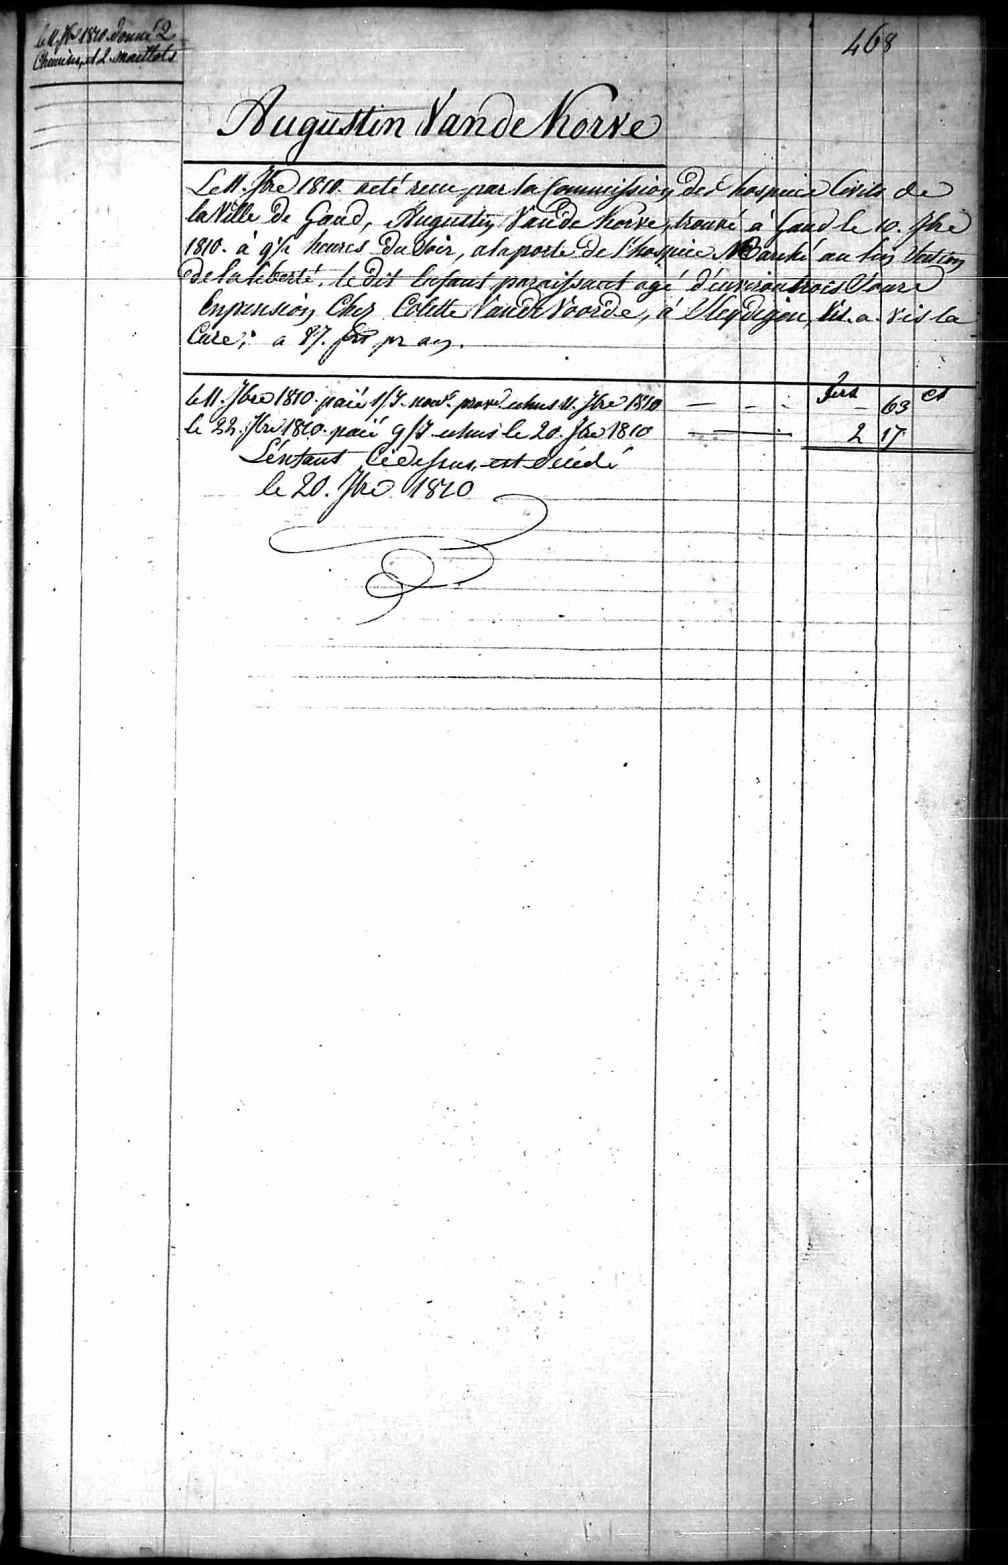 468
le 11. 7bre 1810. donné 2
Chemises, et 2. maillots
Augustin Vande Korve
Le 11. 7bre 1810. a eté recu par la Commission des hospices Civils de
la Ville de Gand, Augustin Vande Korve, trouvé à Gand le 10. 7bre
1810. à 9½ heures du Soir, a la porte de l'hospice Marché au lin Section
de la liberté, le dit Enfant paraissant agé d'environ trois Jours
En pension Chez Colette Vande Voorde, à Sleydigen, vis. a. vis la
Cure; a 87. frs pr an.
frs cs
le 11. 7bre 1810. paié 1/J. echus 11. 7bre 1810 — - - — 63
le 22. 7bre 1810. paié 9/J echus le 20. 7bre 1810 — 2 17
L'enfant Ci dessus est décédé
le 20. 7bre 1810